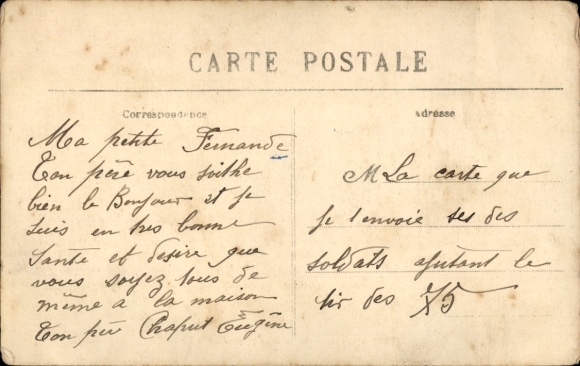 CARTE POSTALE
Correspondance
Ma petite Fernande
Ton père vous suithe
bien le Bonjour et je
suis en tres bonne
Santé et desire que
vous soyez tous de
même a la maison
Ton père Chaput Eugène
Adresse
M La carte que
je t'envoie ses des
soldats ajutant le
tir des 75